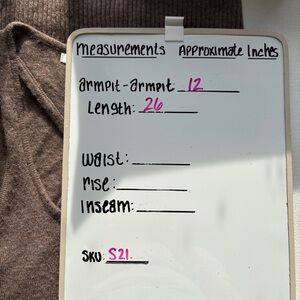 measurements Approximate Inches
armpit-armpit 12
Length: 26
waist:
rise:
Inseam:
SKU: S21.